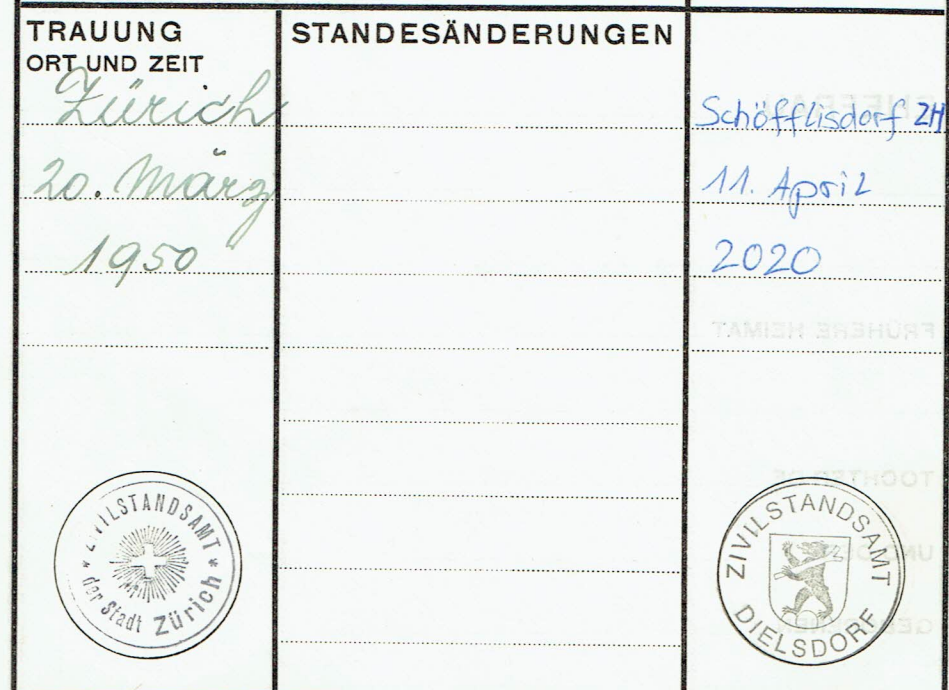 TRAUUNG
ORT UND ZEIT
Zürich
20. März
1950
ZIVILSTANDSAMT
der Stadt Zürich
STANDESÄNDERUNGEN
Schöfflisdorf ZH
11. April
2020
FRÜHERE HEIMAT
TOCHTER DE
ZIVILSTANDSAMT
DIELSDORF